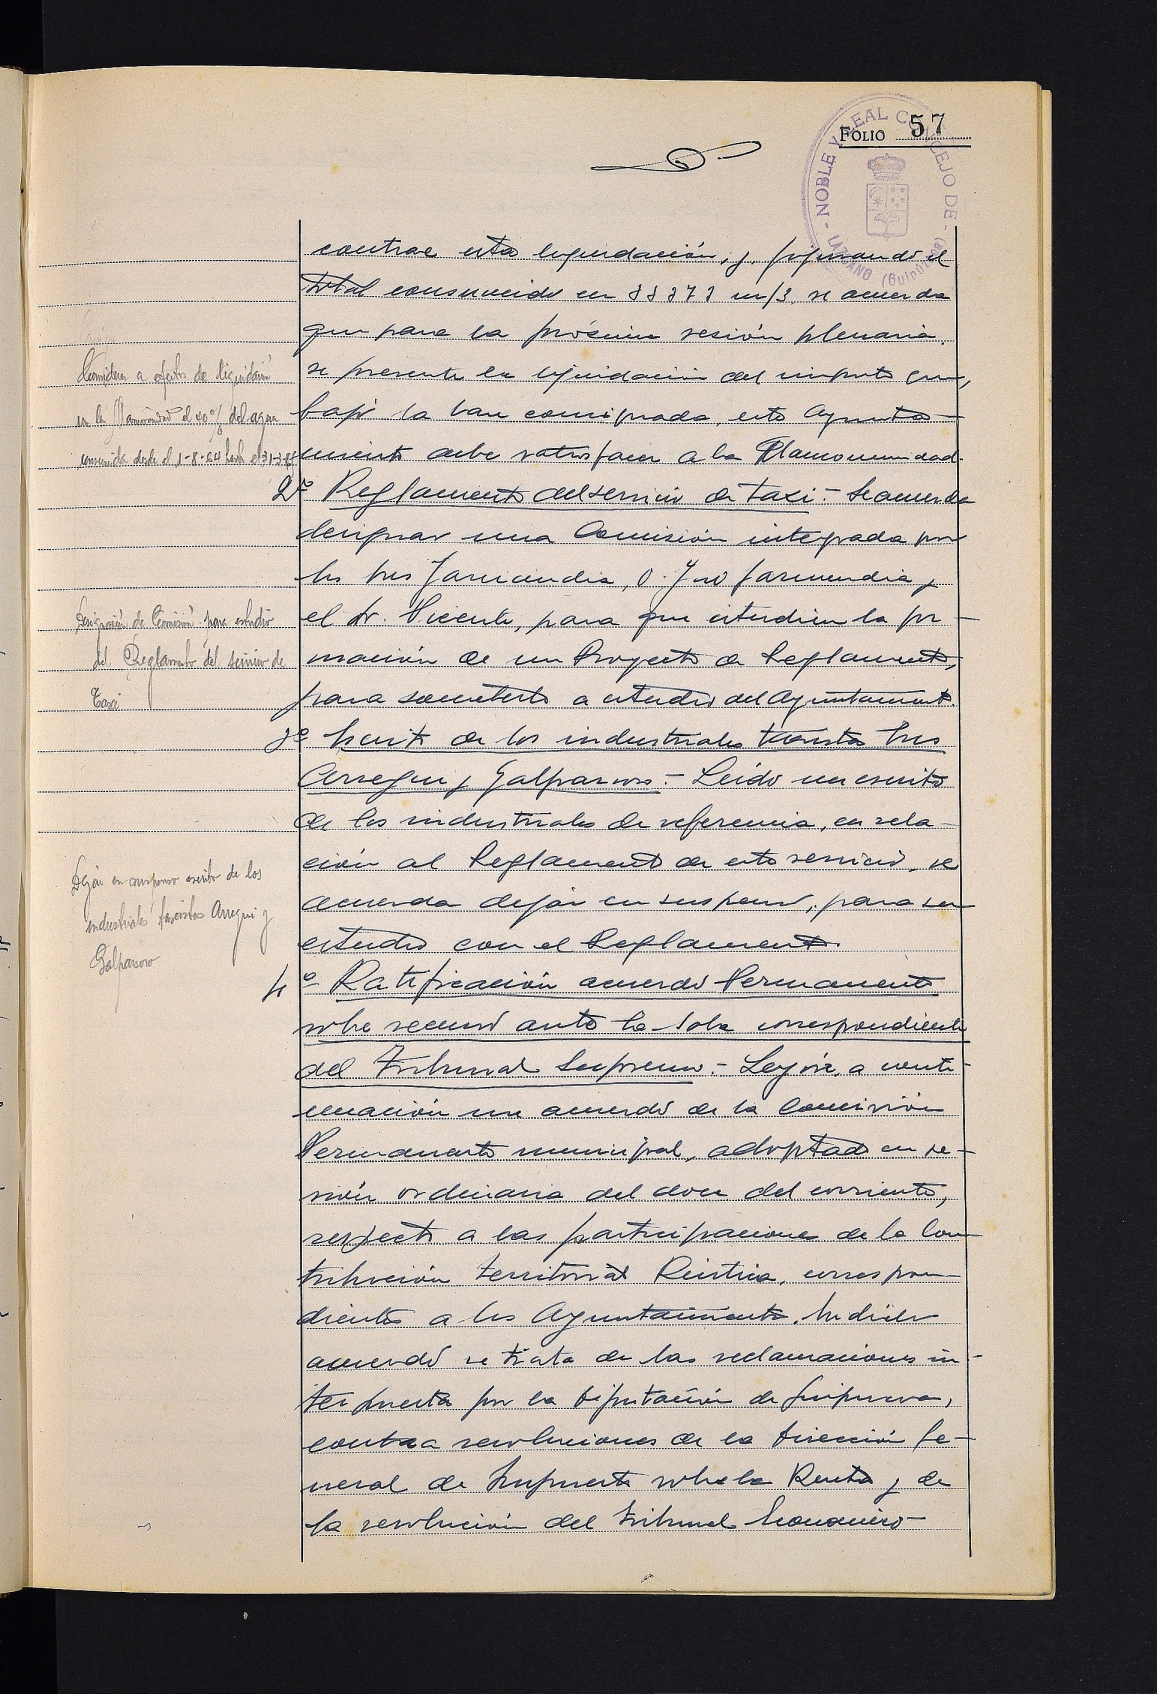 FOLIO 57
NOBLE Y LEAL CONCEJO DE
LAZCANO (Guipúzcoa)
contrae esta liquidación, y, figurando el
total consumido en m/3, se acuerda
que para la próxima sesión plenaria,
se presente la liquidación del importe que,
bajo la base consignada, este Ayunta-
miento debe satisfacer a la Mancomunidad.
Considerar a efectos de liquidación
en la Mancomunidad el 40% del agua
consumida desde el 1-8-64 hasta el
2º Reglamento del servicio de taxi.- Se acuerda
designar una Comisión integrada por
los Sres Jauundia, D. y
el Sr. Vicente, para que estudien la for-
mación de un Proyecto de Reglamento,
para someterlo a estudio del Ayuntamiento.
Designación de Comisión para estudio
del Reglamento del servicio de
Taxi
3º Escrito de los industriales taxistas Sres
Arregui y Galparsoro.- Leído un escrito
de los industriales de referencia, en rela-
ción al Reglamento de este servicio, se
acuerda dejar en suspenso, para su
estudio con el Reglamento.
Dejar en suspenso escrito de los
industriales taxistas Arregui y
Galparsoro
4º Ratificación acuerdo Permanente
sobre recurso ante la Sala correspondiente
del Tribunal Supremo.- Leyóse, a conti-
nuación un acuerdo de la Comisión
Permanente municipal, adoptado en se-
sión ordinaria del doce del corriente,
respecto a las participaciones de la Con-
tribución Territorial Rústica, correspon-
dientes a los Ayuntamientos. En dicho
acuerdo se trata de las reclamaciones in-
terpuestas por la Diputación de Guipúzcoa,
contra resoluciones de la Dirección Ge-
neral de Impuestos sobre la Renta y de
la resolución del Tribunal Económico